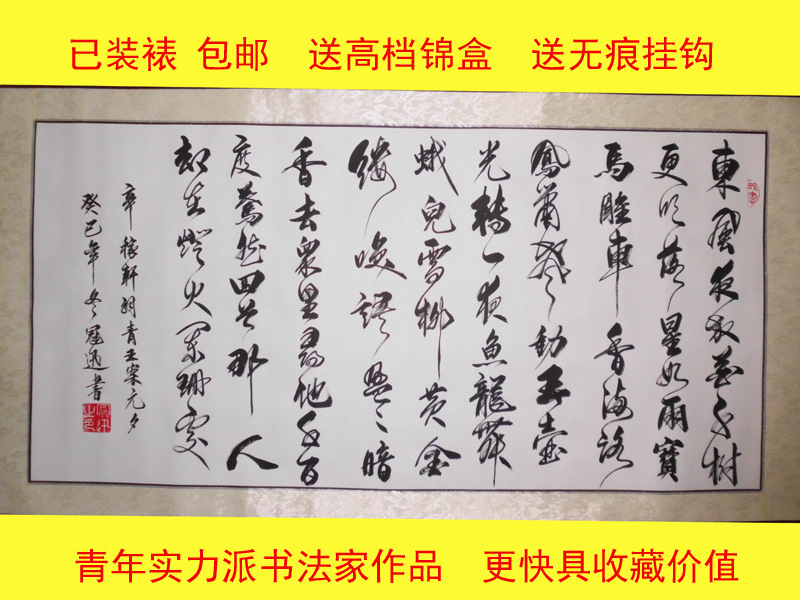 已装裱 包邮 送高档锦盒 送无痕挂钩
東風夜放花千樹
更吹落星如雨寶
馬雕車香滿路
鳳簫聲動玉壺
光轉一夜魚龍舞
蛾兒雪柳黃金
縷笑語盈々暗
香去眾里尋他千百
度驀然回首那人
却在燈火闌珊處
辛稼軒詞青玉案元夕
癸巳年冬冠迅書
青年实力派书法家作品 更快具收藏价值